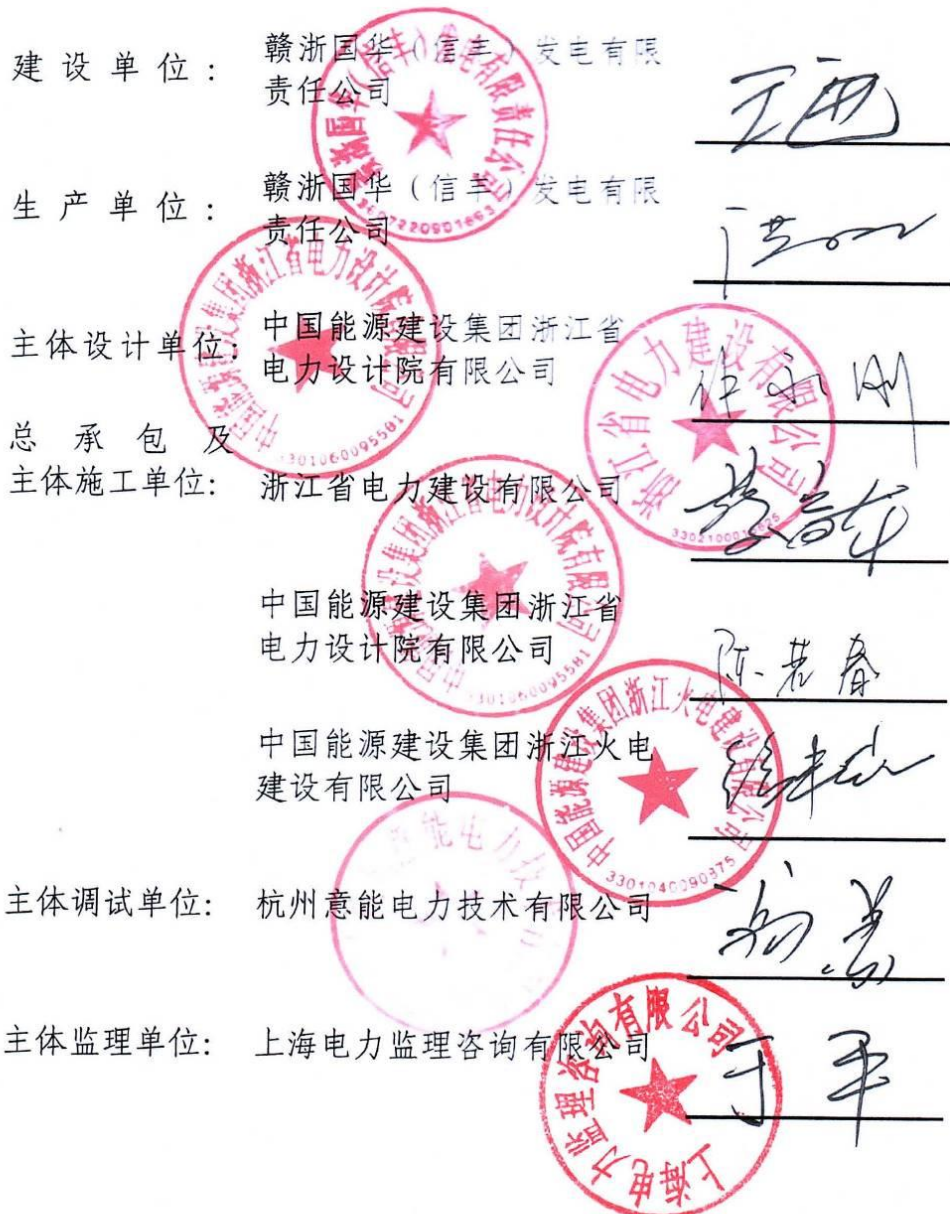 建设单位: 赣浙国华（信丰）发电有限
责任公司
生产单位: 赣浙国华（信丰）发电有限
责任公司
主体设计单位: 中国能源建设集团浙江省
电力设计院有限公司
总承包及
主体施工单位: 浙江省电力建设有限公司
中国能源建设集团浙江省
电力设计院有限公司
陈若春
中国能源建设集团浙江火电
建设有限公司
主体调试单位: 杭州意能电力技术有限公司
主体监理单位: 上海电力监理咨询有限公司
于平
浙江省电力建设有限公司
中国能源建设集团浙江火电建设有限公司
3301040090875
上海电力监理咨询有限公司